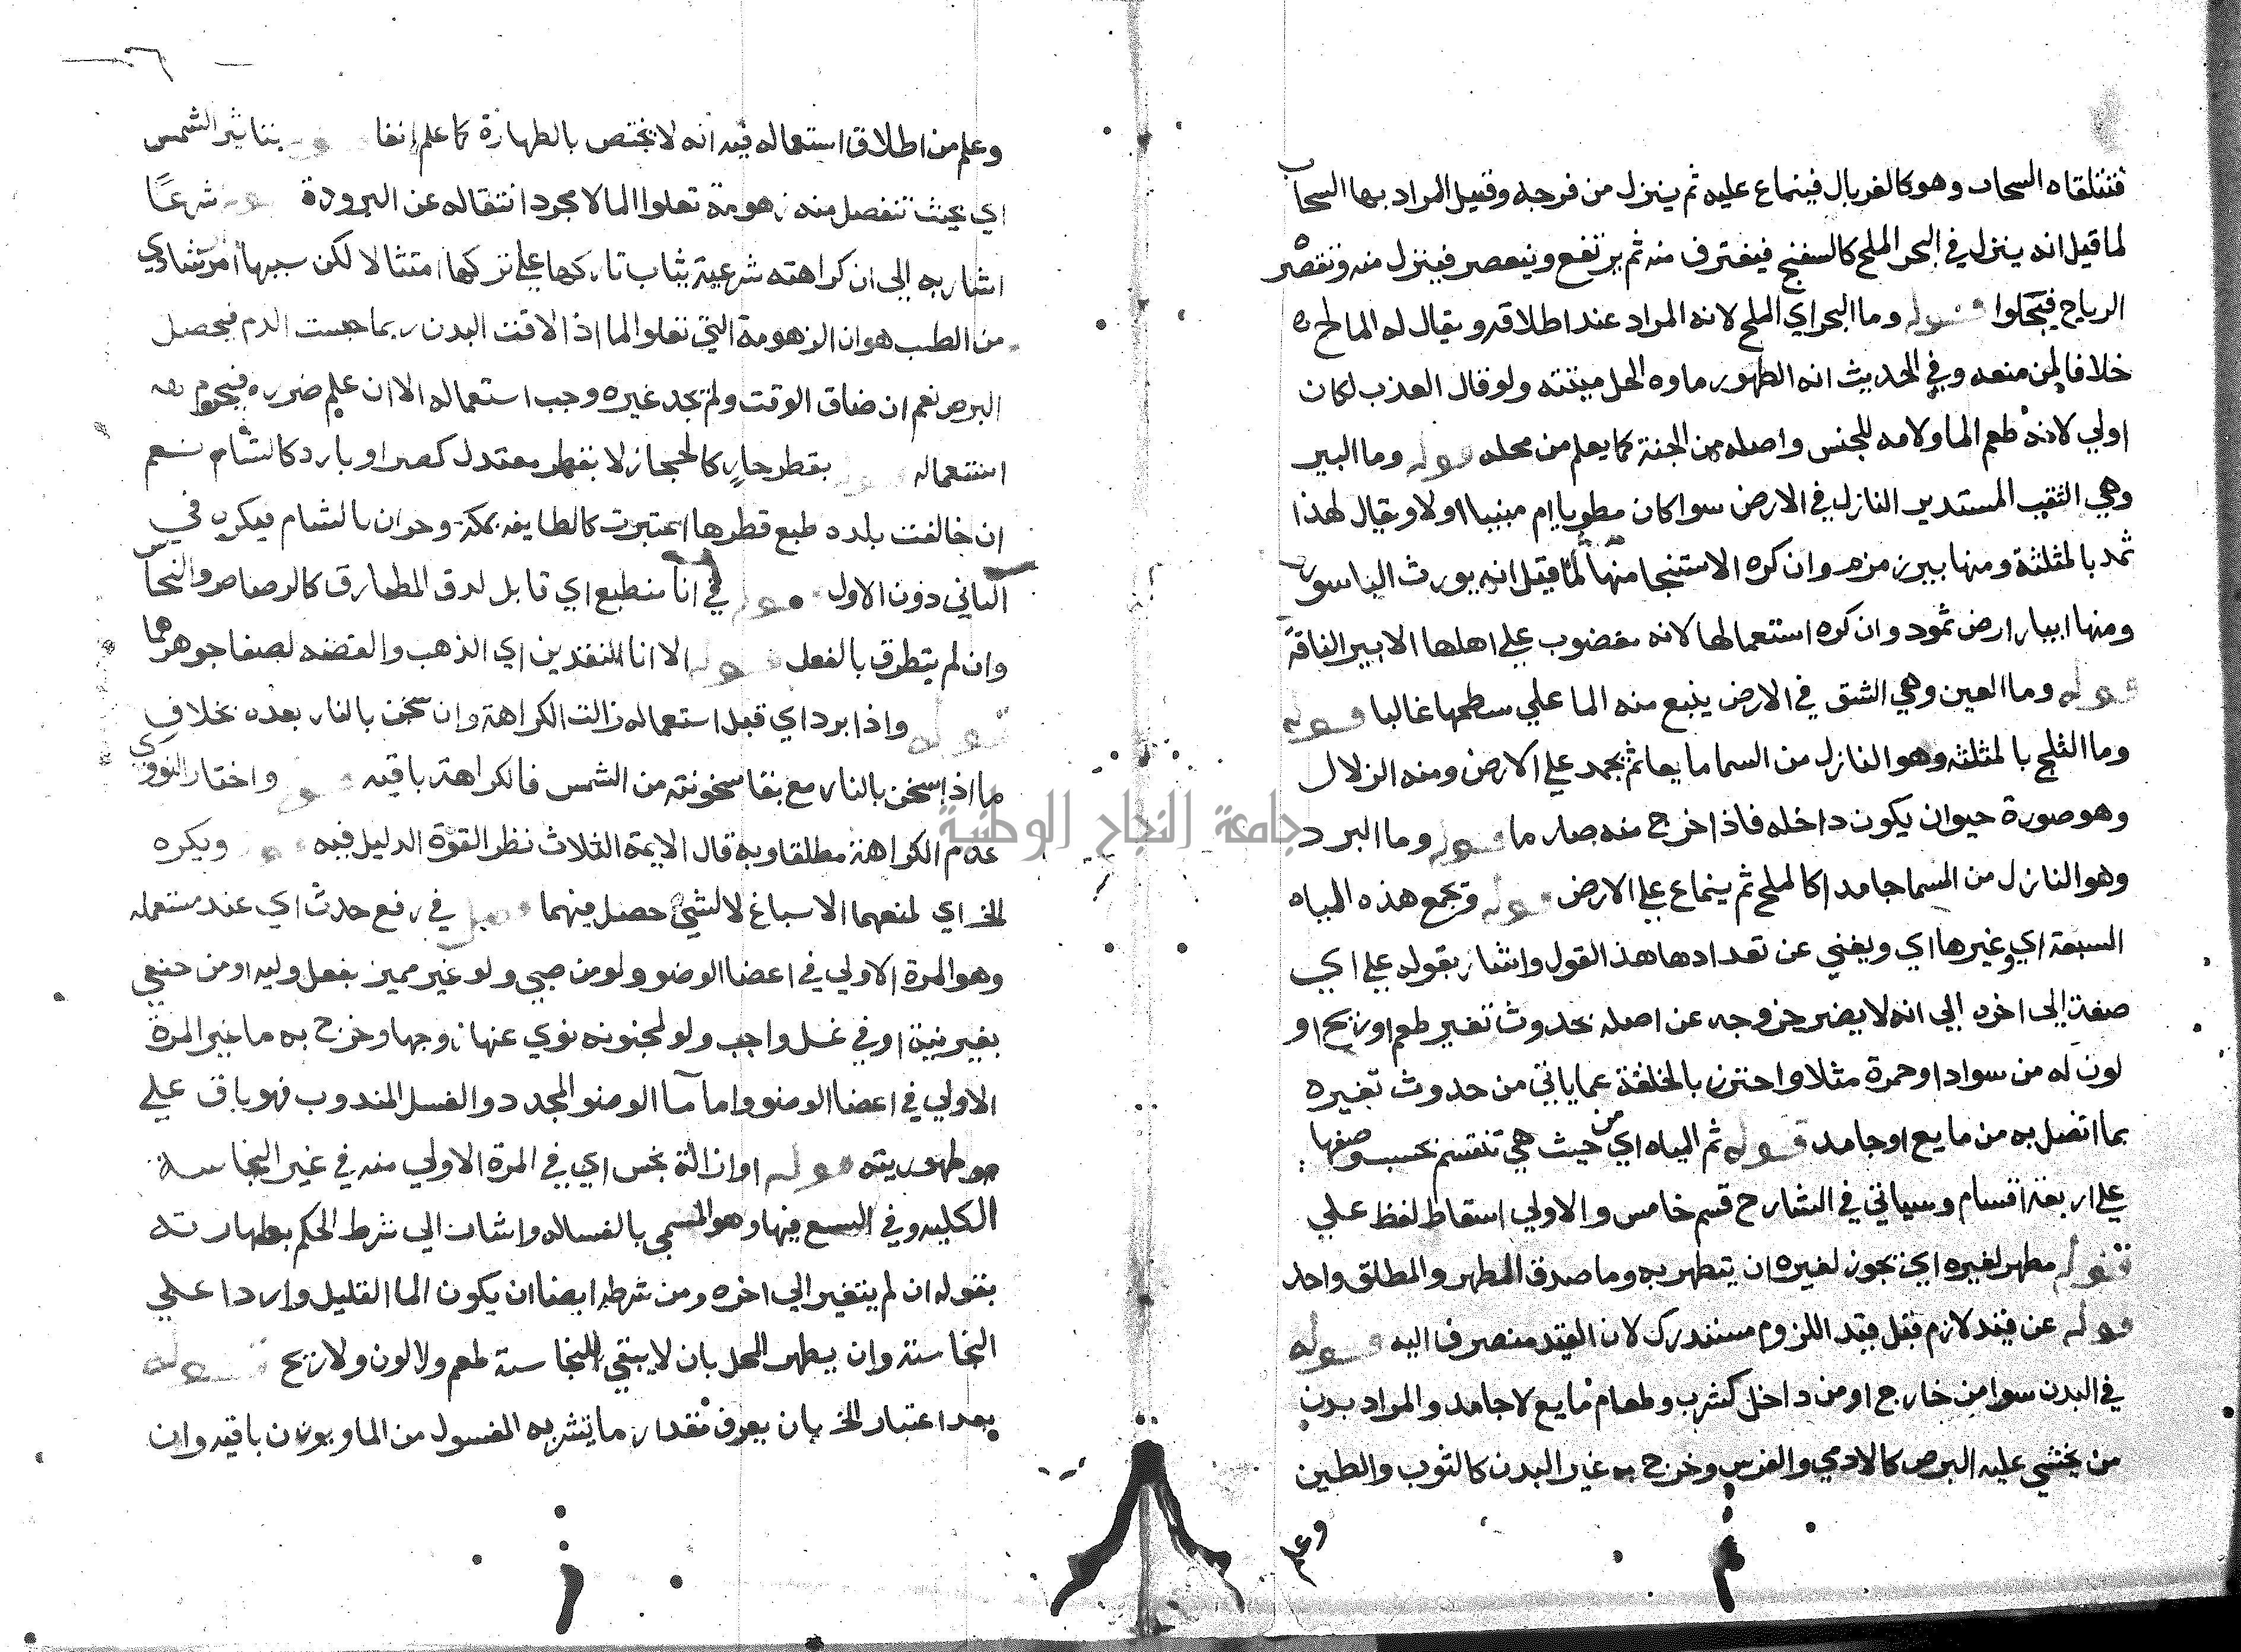 فتتلقاه السحاب وهو كالغربال فينماع عليه ثم ينزل من فرجه وقيل المراد بها السحاب
لما قيل انه ينزل في البحر الملح كالسفنج فيغترف منه ثم يرتفع وينعصر فينزل منه وتقصر
الرياح فيحلوا قوله وما البحر اي الملح لانه المراد عند اطلاقه ويقال له المالح
خلافا لمن منعه وفي الحديث انه الطهور ماوه الحل ميتته ولو قال العذب لكان
اولي لانه طعم الما ولامه للجنس واصله من الجنة كما يعلم من محله قوله وما البير
وهي الثقب المستدير النازل في الارض سوا كان مطويا ام مبنيا اولا ويقال لهذا
ثمد بالمثلثة ومنها بير زمزم وان كره الاستنجا منها لما قيل انه يورث الباسور
ومنها ابيار ارض ثمود وان كره استعمالها لانه مغضوب علي اهلها الا بير الناقة
قوله وما العين وهي الشق في الارض ينبع منه الما علي سطحها غالبا قوله
وما الثلج بالمثلثه وهو النازل من السما مايعا ثم يجمد علي الارض ومنه الزلال
وهو صورة حيوان يكون داخله فاذا خرج منه صار ما قوله وما البرد
وهو النازل من السما جامدا كالملح ثم ينماع علي الارض قوله وتجمع هذه المياه
السبعة اي وغيرها اي ويغني عن تعدادها هذا القول واشار بقوله علي اي
صفة الي اخره الي انه لا يضر خروجه عن اصله بحدوث تغير طعم او ريح او
لون له من سواد او حمرة مثلا واحترز بالخلقة عما ياتي من حدوث تغيره
بما اتصل به من مايع او جامد قوله ثم المياه اي من حيث هي تنقسم بحسب وصفها
علي اربعة اقسام وسياتي في الشارح قسم خامس والاولي اسقاط لفظ علي
قوله مطهر لغيره اي تجوز لغيره ان يتطهر به وما صدق المطهر والمطلق واحد
قوله عن قيد لازم قبل قيد اللزوم مستدرك لان القيد منصرف اليه قوله
في البدن سوا من خارج او من داخل كشرب وطعام مايع لا جامد والمراد بدن
من يخشي عليه البرص كالادمي والفرس وخرج به غير البدن كالثوب والطين
وعلم
وعلم من اطلاق استعماله فيه انه لا يختص بالطهارة كما علم انفا قوله بتاثير الشمس
اي بحيث تنفصل منه زهومة تعلوا الما لا مجرد انتقاله عن البرودة قوله شرعًا
اشار به الي ان كراهته شرعية يثاب تاركها علي تركها امتثالا لكن سببها امر ارشادي
من الطب هو ان الزهومة التي تعلوا الما اذا لاقت البدن ربما حبست الدم فيحصل
البرص نعم ان ضاق الوقت ولم يجد غيره وجب استعماله الا ان علم ضرره فيحرم
استعماله قوله بقطر حار كالحجاز لا بقطر معتدل كمصر او بارد كالشام نعم
ان خالفت بلده طبع قطرها اعتبرت كالطايف بمكة وحوران بالشام فيكره في
الثاني دون الاول قوله في انا منطبع اي قابل لدق المطارق كالرصاص والنحاس
وان لم يتطرق بالفعل قوله الا انا النقدين اي الذهب والفضه لصفا جوهرهما
قوله واذا برد اي قبل استعماله زالت الكراهة وان سخن بالنار بعده بخلاف
ما اذا سخن بالنار مع بقا سخونته من الشمس فالكراهة باقيه قوله واختار النووي
عدم الكراهة مطلقا وبه قال الايمة الثلاث نظرا لقوة الدليل فيه قوله ويكره
الخ اي لمنعهما الاسباغ لا لشي حصل فيهما قوله في رفع حدث اي عند مستعمله
وهو المرة الاولي في اعضا الوضو ولو من صبي ولو غير مميز بفعل وليه او من حنفي
بغير نية او في غسل واجب ولو لمجنونه نوي عنها زوجها وخرج به ما غير المرة
الاولي في اعضا الوضو واما ما الوضو المجدد والغسل المندوب فهو باق علي
طهوريته قوله او ازالة نجس اي في المرة الاولي منه في غير النجاسة
الكلبيه وفي السبع فيها وهو المسمي بالغساله واشار الي شرط الحكم بطهارته
بقوله ان لم يتغير الي اخره ومن شرطه ايضا ان يكون الما القليل واردا علي
النجاسة وان يطهر المحل بان لا يبقي للنجاسة طعم ولا لون ولا ريح قوله
بعد اعتبار الخ بان يعرف مقدار ما يتشربه المغسول من الما ويوزن باقيه وان
جامعة النجاح الوطنية